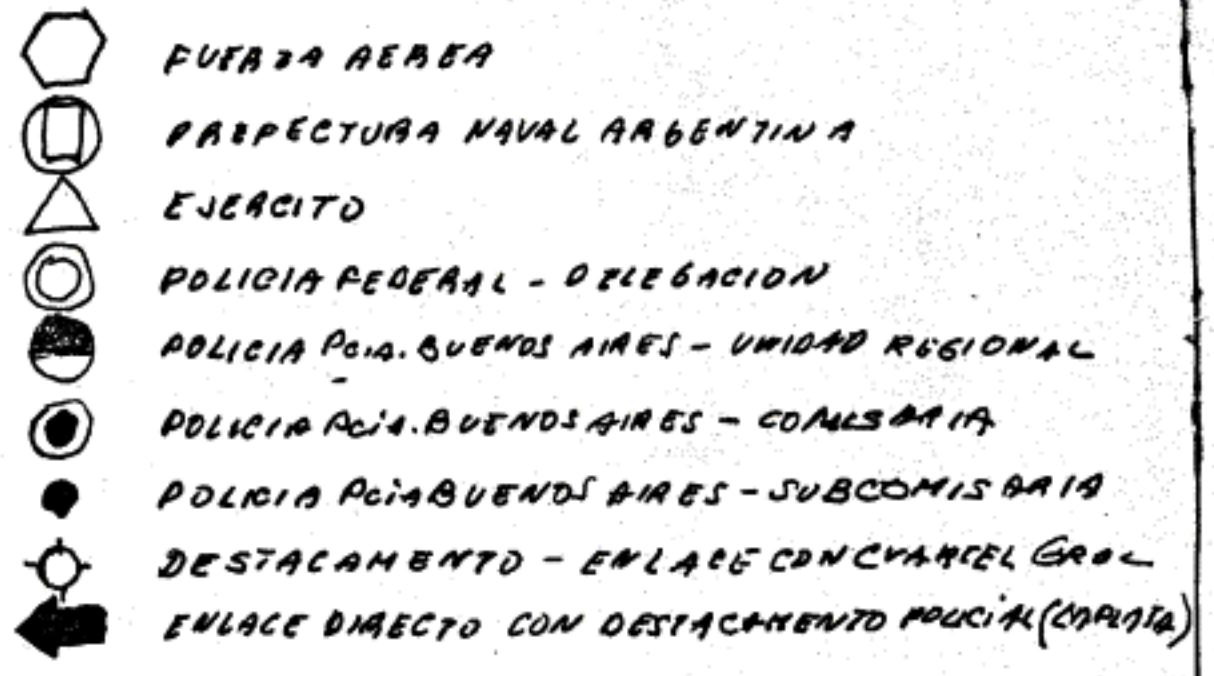 FUERZA AEREA
PREFECTURA NAVAL ARGENTINA
EJERCITO
POLICIA FEDERAL - DELEGACION
POLICIA Pcia. BUENOS AIRES - UNIDAD REGIONAL
POLICIA Pcia. BUENOS AIRES - COMISARIA
POLICIA Pcia BUENOS AIRES - SUBCOMISARIA
DESTACAMENTO - ENLACE CON CUARTEL GRAL
ENLACE DIRECTO CON DESTACAMENTO POLICIAL (LA PLATA)